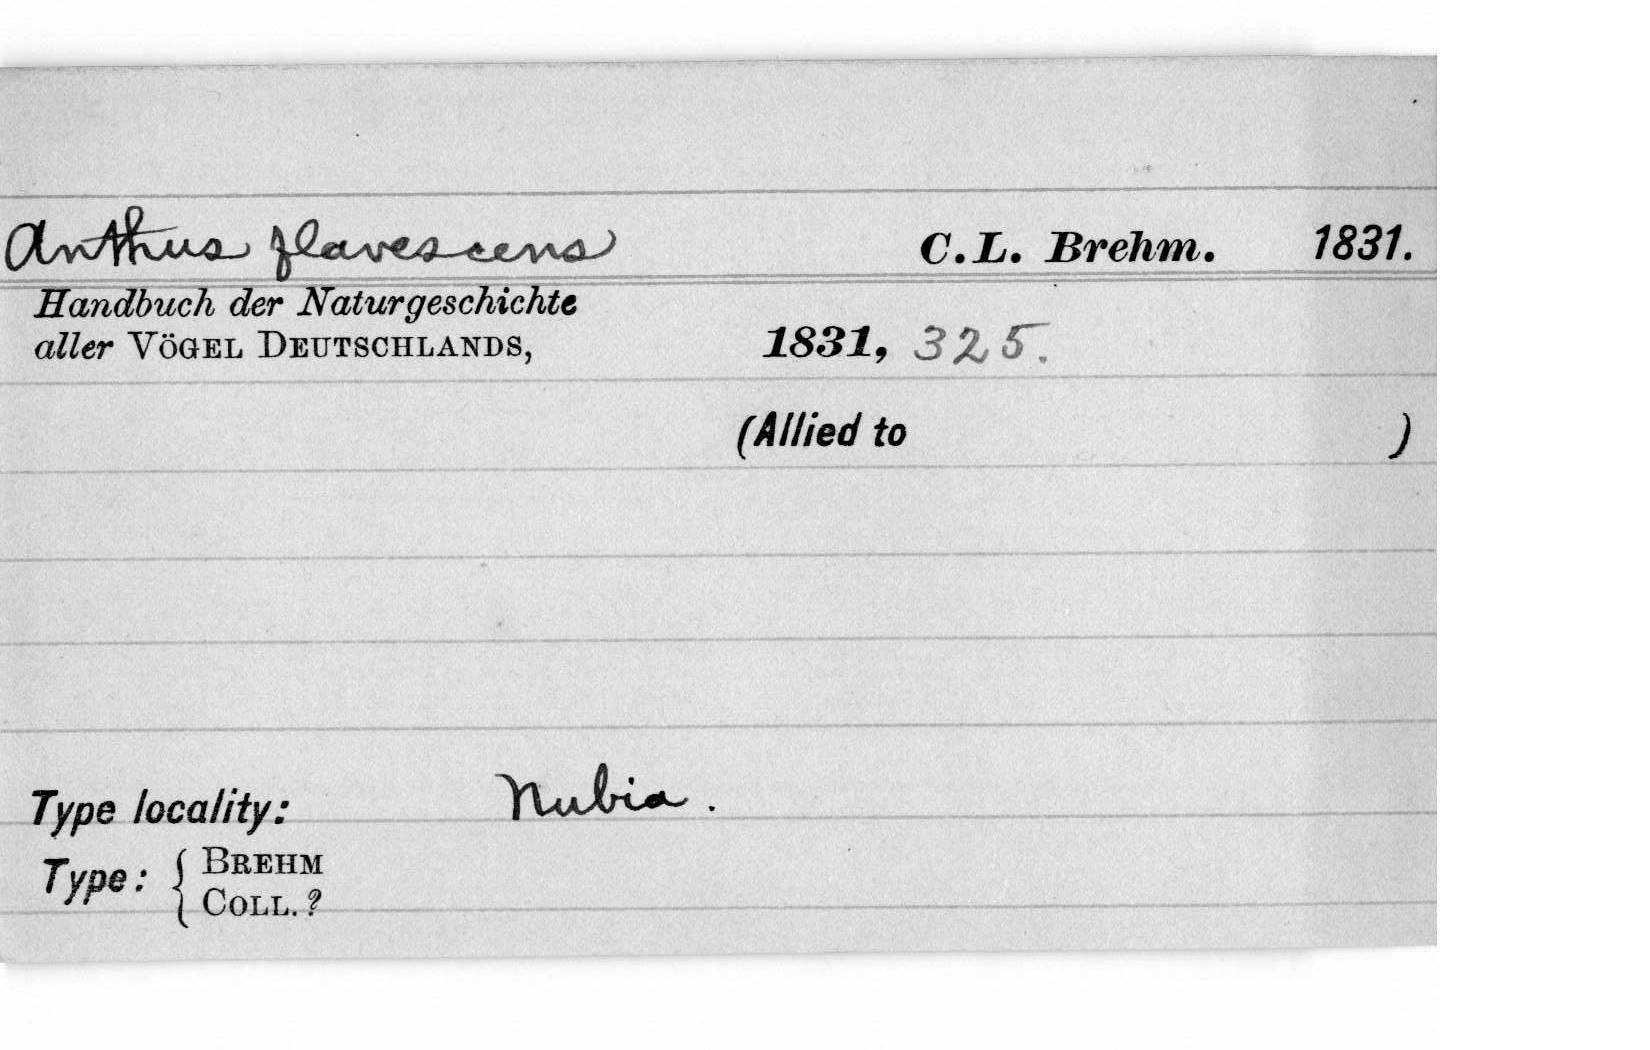 Anthus flavescens C.L. Brehm. 1831.
Handbuch der Naturgeschichte
aller VÖGEL DEUTSCHLANDS, 1831, 325.
(Allied to )
Type locality: Nubia.
Type: { BREHM
COLL.?